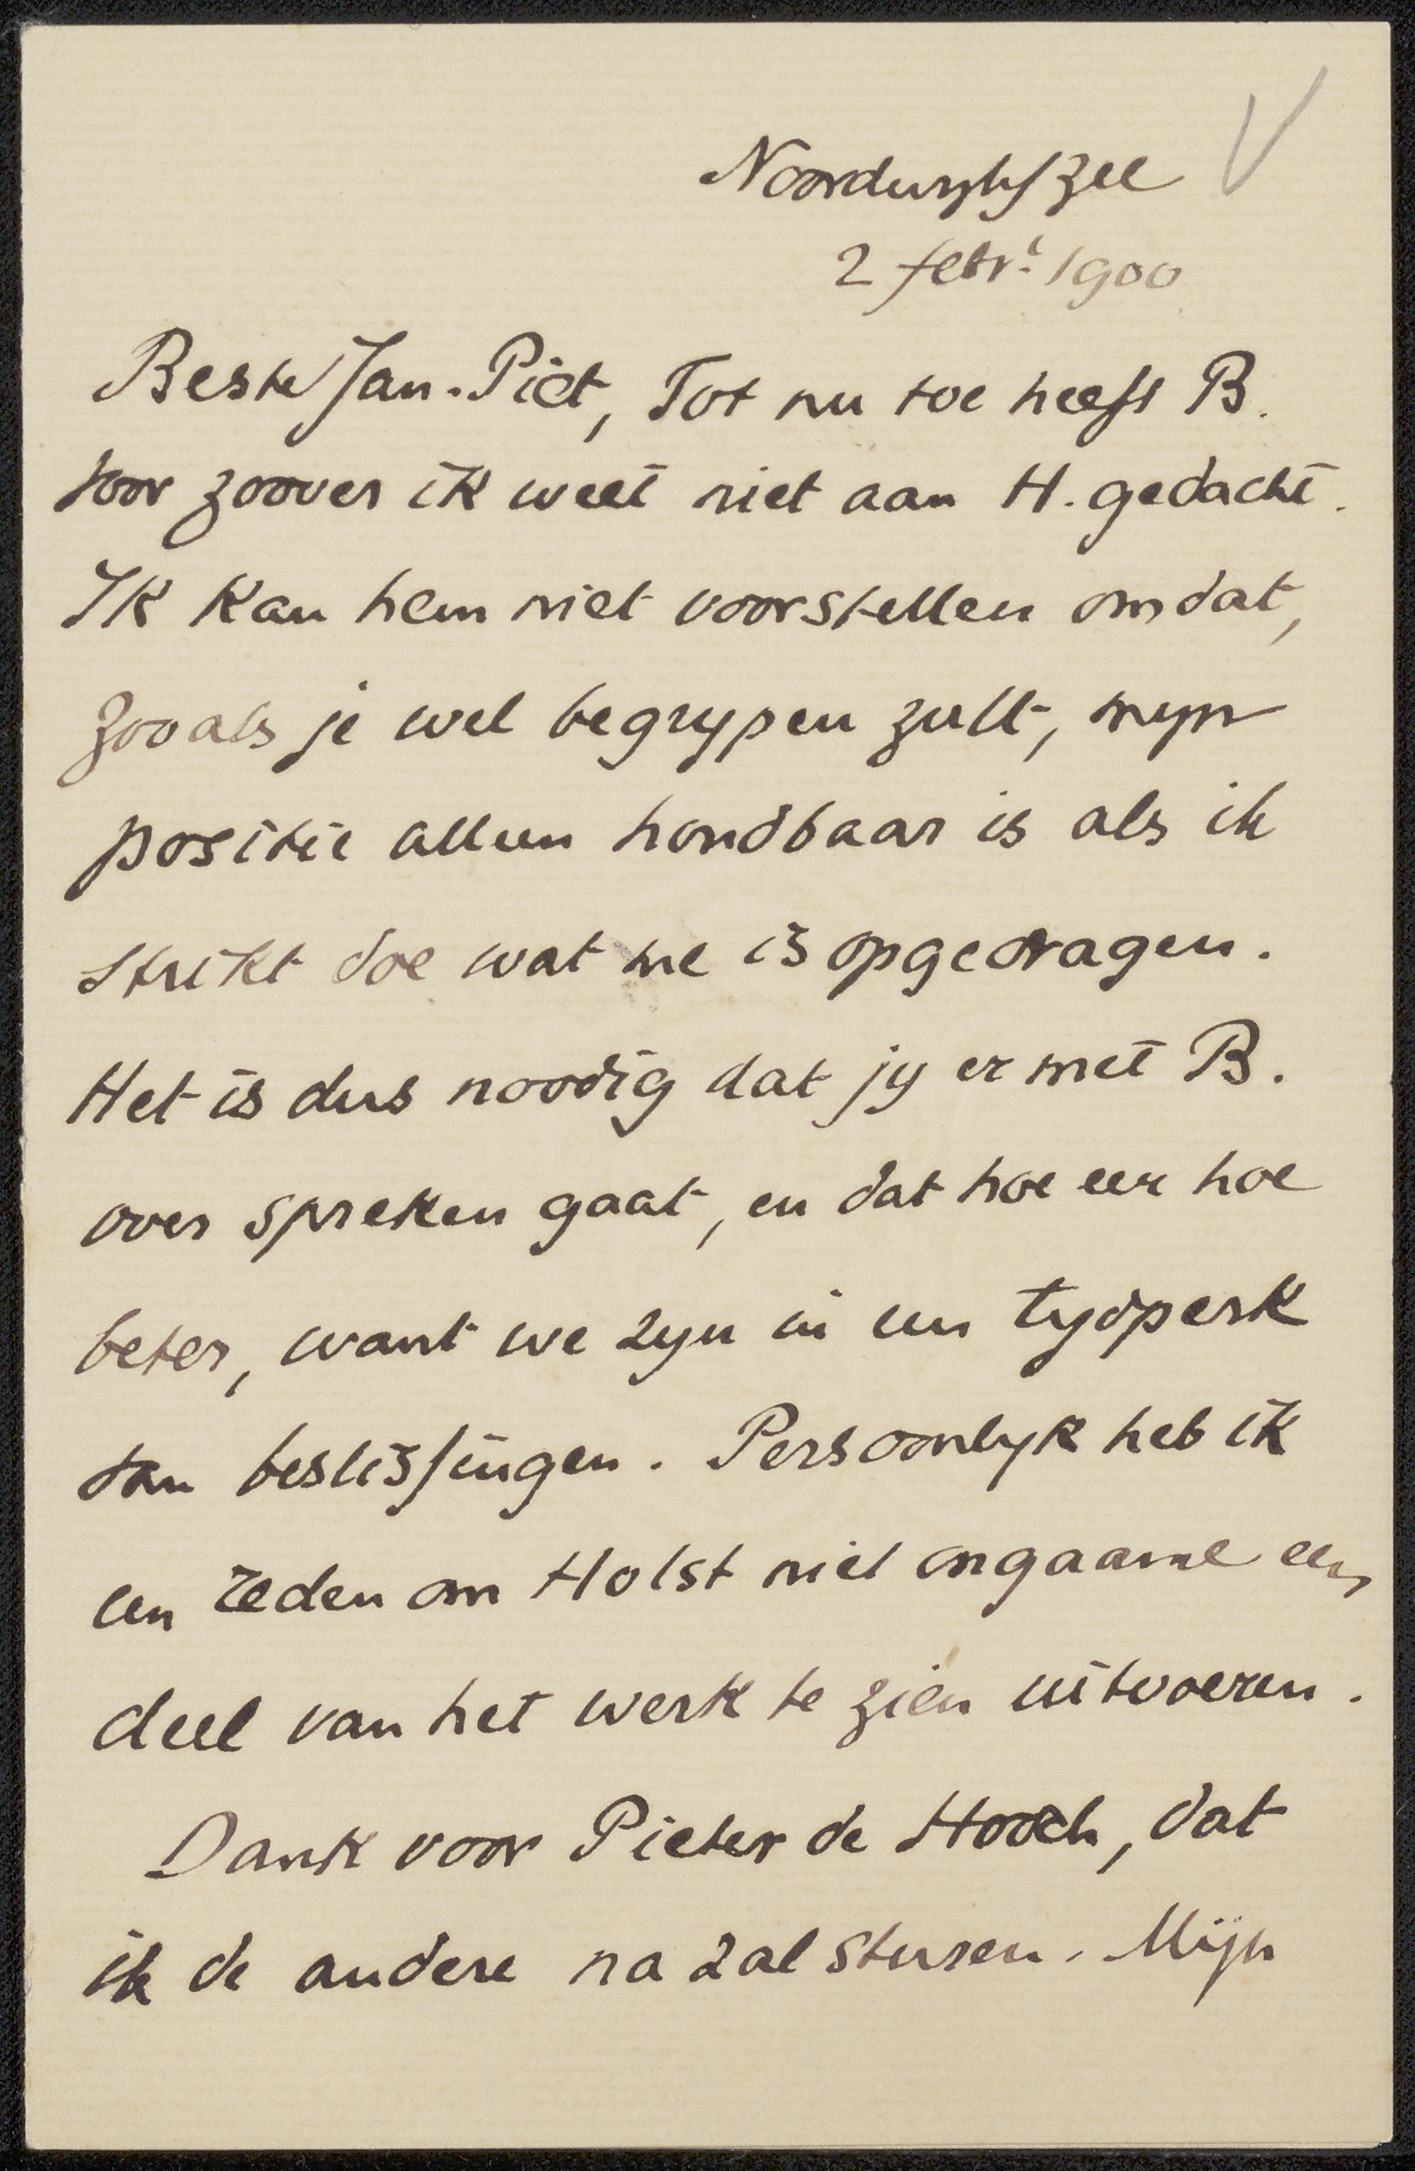 Noordwyk/Zee
2 febr. 1900
Beste Jan-Piet, Tot nu toe heeft B.
voor zoover ik weet niet aan H. gedacht.
Ik kan hem niet voorstellen omdat,
zooals je wel begrypen zult, myn
positie alleen houdbaar is als ik
strikt doe wat me is opgedragen.
Het is dus noodig dat jy er met B.
over spreken gaat, en dat hoe eer hoe
beter, want we zyn in een tydperk
van beslissingen. Persoonlyk heb ik
een reden om Holst niet ongaarne een
deel van het werk te zien uitvoeren.
Dank voor Pieter de Hooch, dat
ik de andere na zal sturen. Mijn